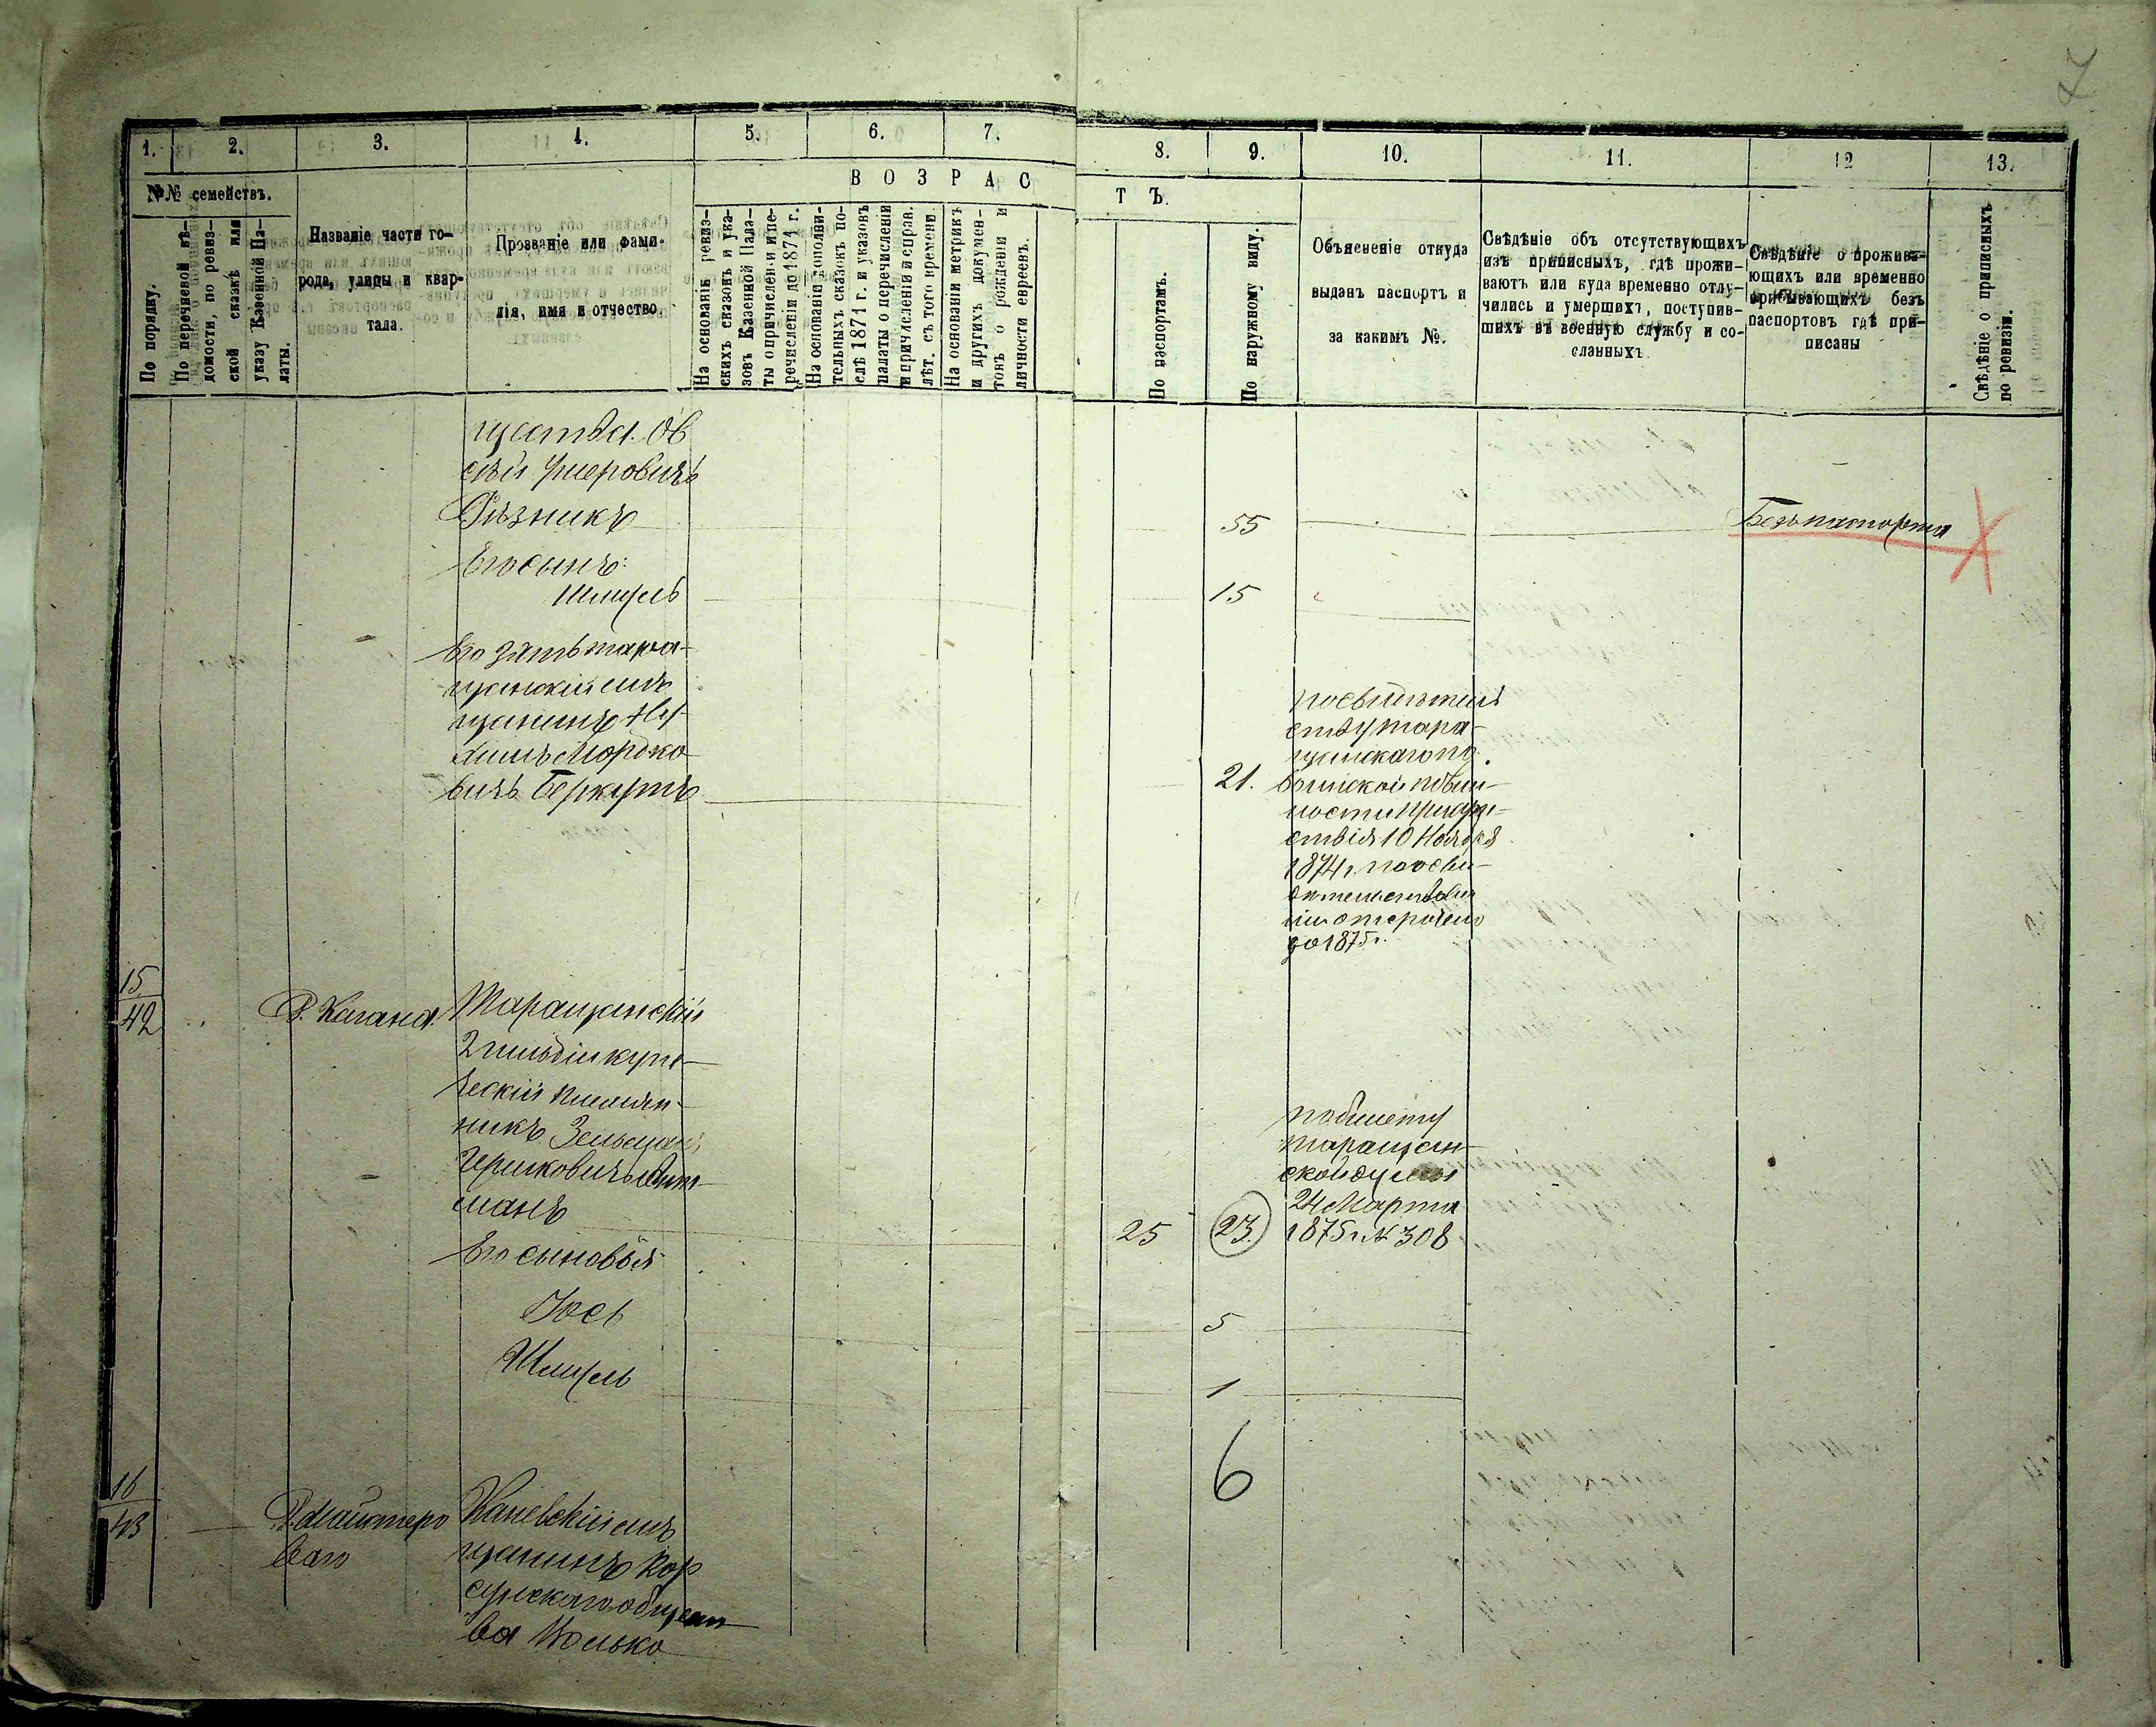 7
1. 2. 3. 4. 5. 6. 7. 8. 9. 10. 11. 12 13.
№№ семействъ.
В О З Р А С Т Ъ.
По порядку.
По перечневой вѣ-
домости, по ревиз-
ской сказкѣ или
указу Казенной Па-
латы.
Названіе части го-
рода, улицы и квар-
тала.
Прозваніе или фами-
лія, имя и отчество.
На основаніи ревиз-
скихъ сказокъ и ука-
зовъ Казенной Пала-
ты о причисленіи и пе-
речисленіи до 1871 г.
На основаніи дополни-
тельныхъ сказокъ по-
слѣ 1871 г. и указовъ
палаты о перечисленіи
и причисленіи и справ.
лѣт. съ того времени.
На основаніи метрикъ
и другихъ докумен-
товъ о рожденіи и
личности евреевъ.
По паспортамъ.
По наружному виду.
Объясненіе откуда
выданъ паспортъ и
за какимъ №.
Свѣдѣніе объ отсутствующихъ
изъ приписныхъ, гдѣ прожи-
ваютъ или куда временно отлу-
чились и умершихъ, поступив-
шихъ въ военную службу и со-
сланныхъ.
Свѣдѣніе о прожива-
ющихъ или временно
прибывающихъ безъ
паспортовъ гдѣ при-
писаны
Свѣдѣніе о приписныхъ
по ревизіи.
щества Ов
сѣй
Рѣзникъ 55 Безъ паспорта
Его сынъ:
Шмуль 15
Его зять тара-
щанскій мѣ
щанинъ Ну-
химъ Мордко
вичъ Беркутъ 21.
по свидѣтель
ству тара-
щанскаго по
воинской повин-
ности присут-
ствія 10 Ноября
1874 г. по осви-
дѣтельствова
ніи отсрочено
до 1875 г.
15
42
Р. Кагана
Таращанскій
2 гильдіи купе-
ческій племян-
никъ
Гершковичъ
манъ 25 23.
по билету
таращан-
ской думы
24 Марта
1875 г. № 308
Его сыновья
Іось 5
Шмуль 1
6
16
43
Каневскій мѣ
щанинъ Кор
сунскаго общест
ва Волько